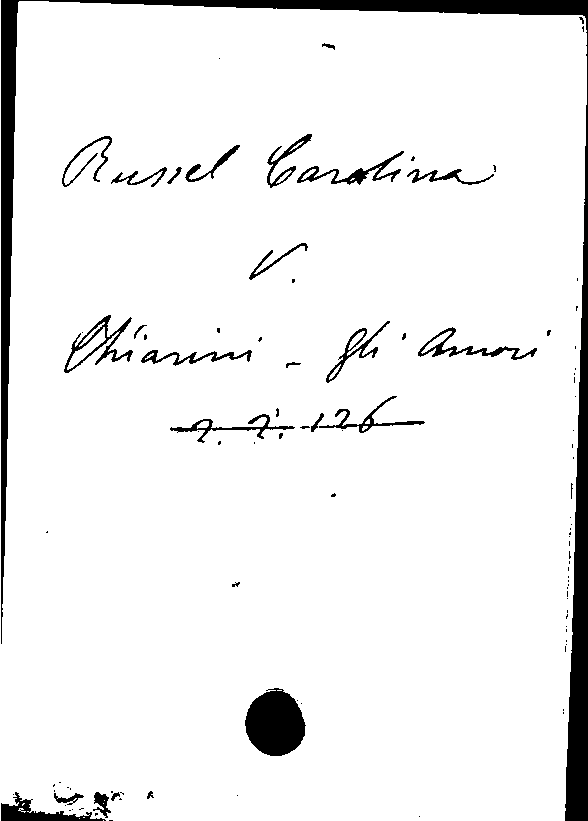 Russel Carolina
V.
Chiarini - Gli Amori
2. 2. 126